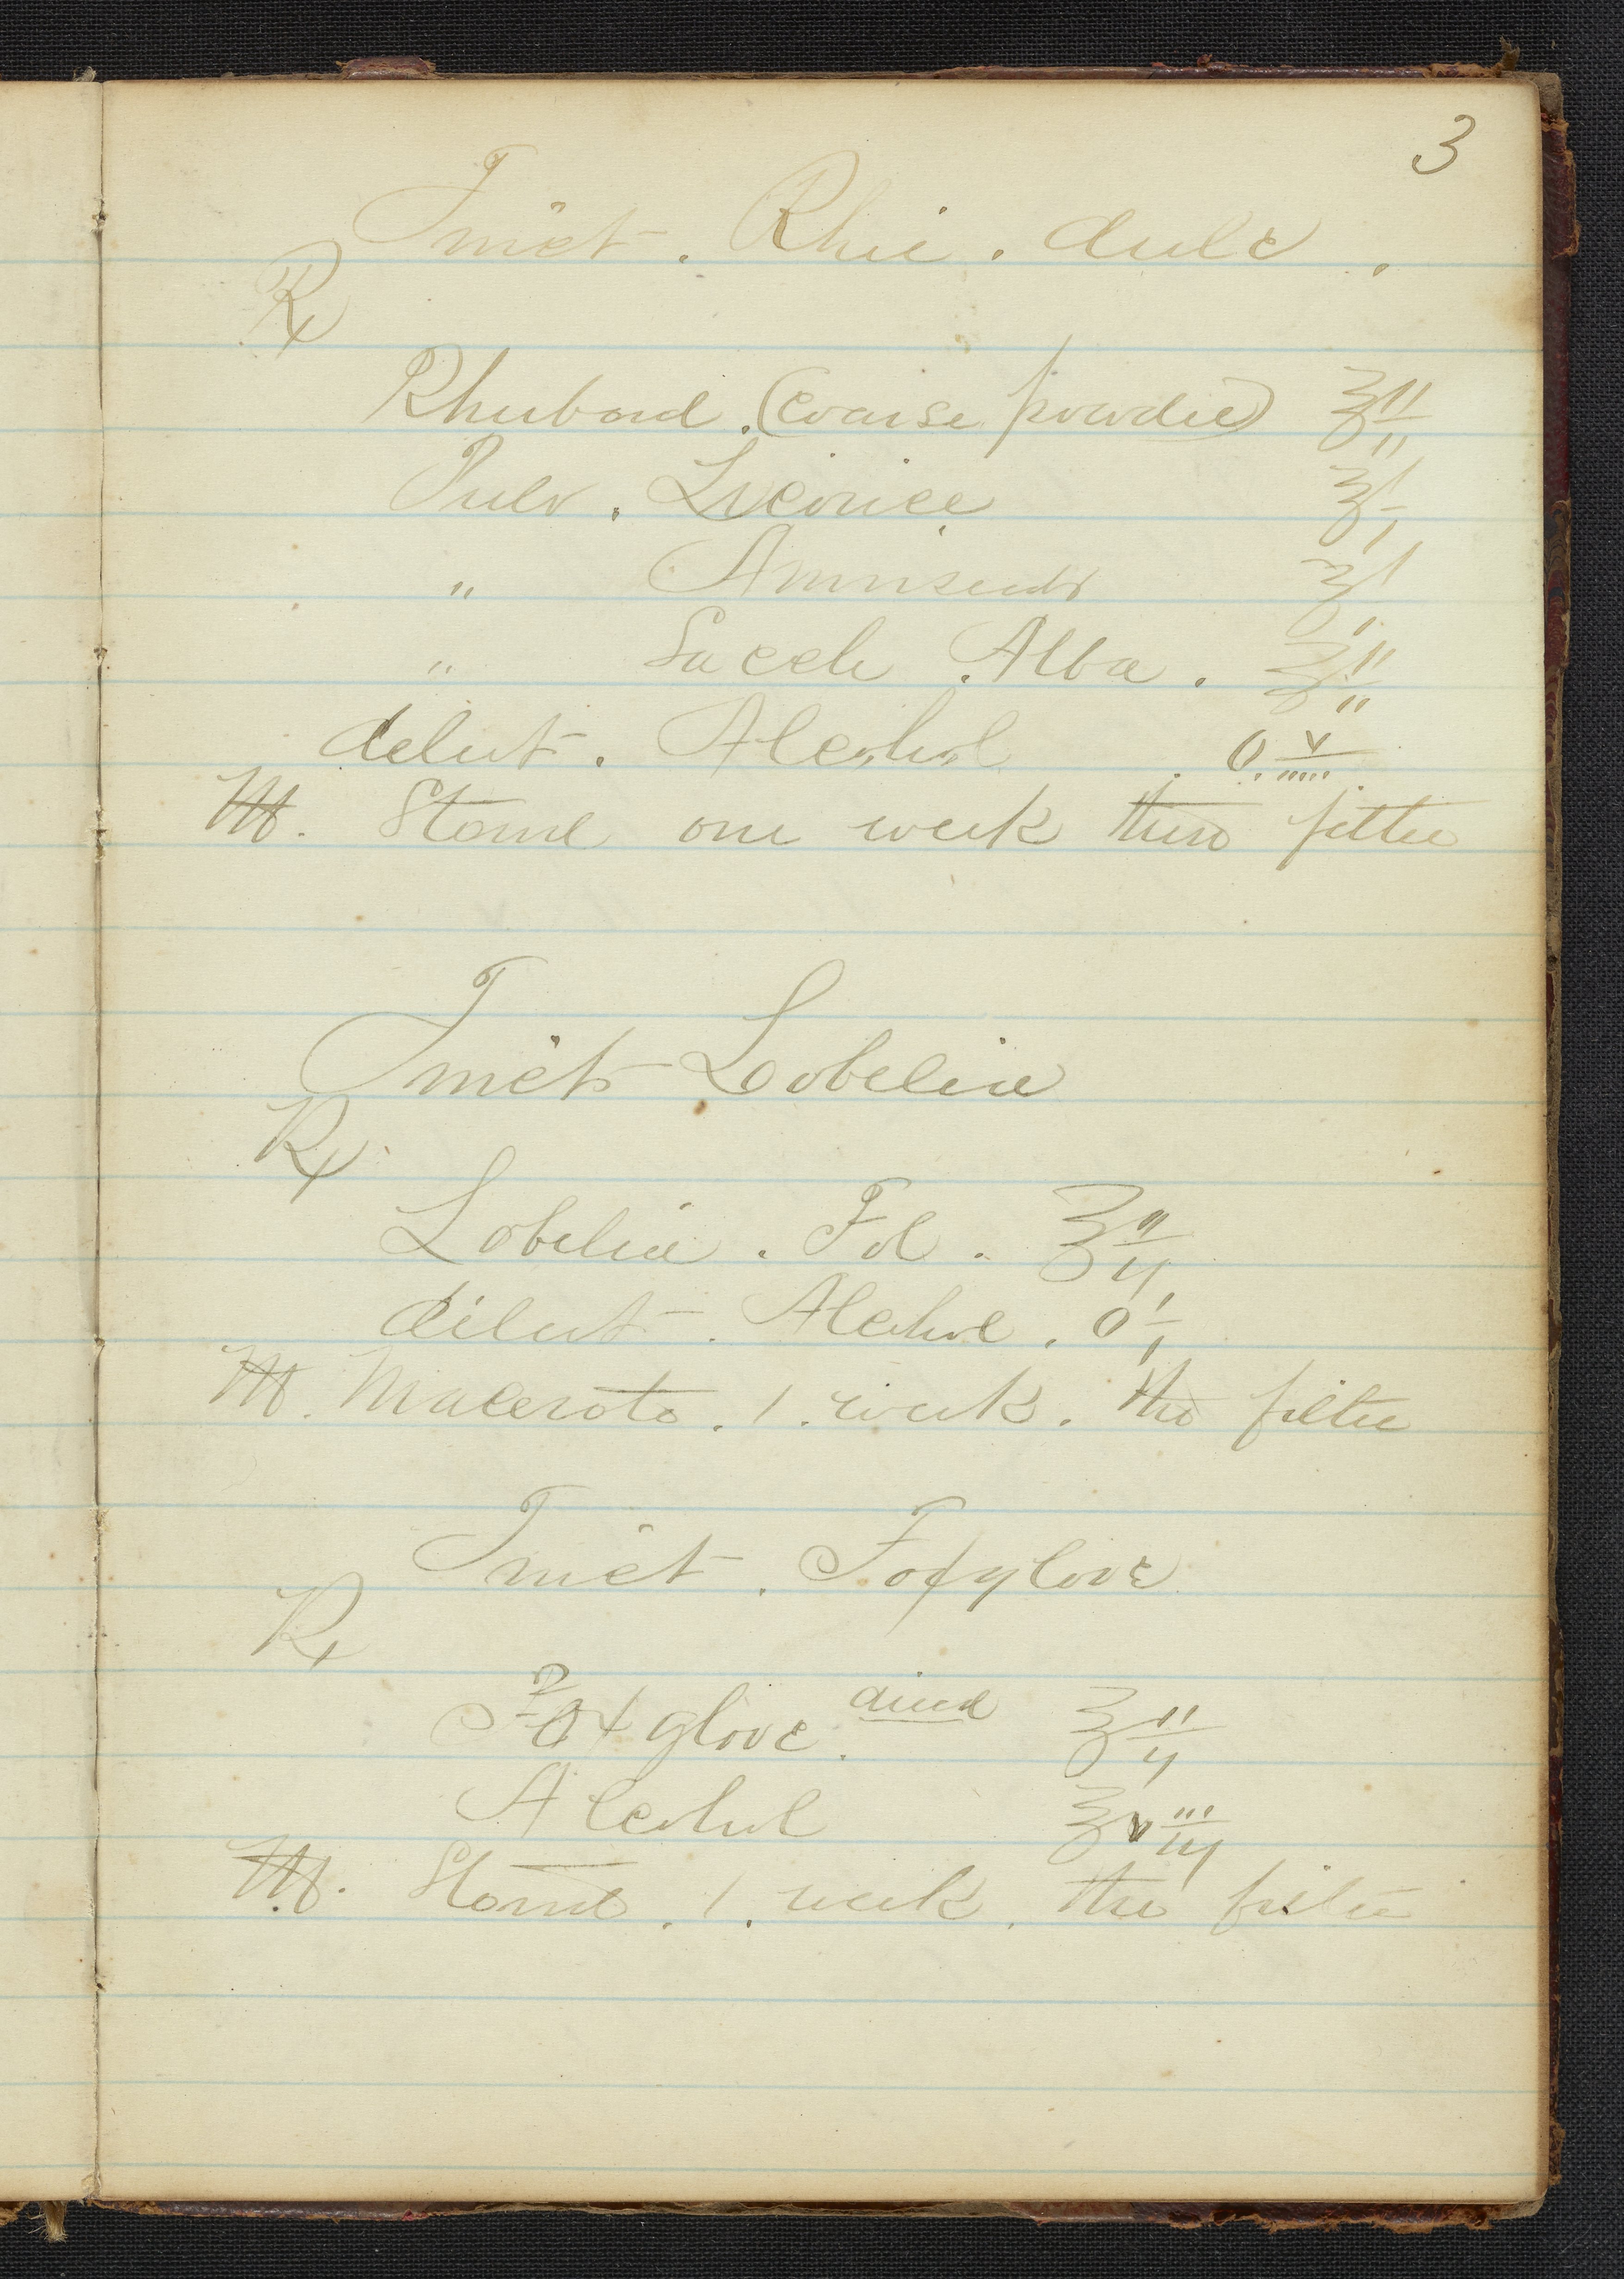 3
Tinct. Rhei. dulc.
℞
Rhubard. (coarse powder) ℥ii
Pulv. Licorice ℥i
" Anniseeds ℥i
" Sacch. Alba. ℥ii
dilut. Alcohol O. v
M. Stand one week then filter
Tinct Lobelia
℞
Lobelia. Fol. ℥ii
dilut. Alcohol. Oi
M. Macerate. 1. week. then filter
Tinct. Foxglove
℞
Foxglove. dried ℥ii
Alcohol ℥viii
M. Stand. 1. week. then filter